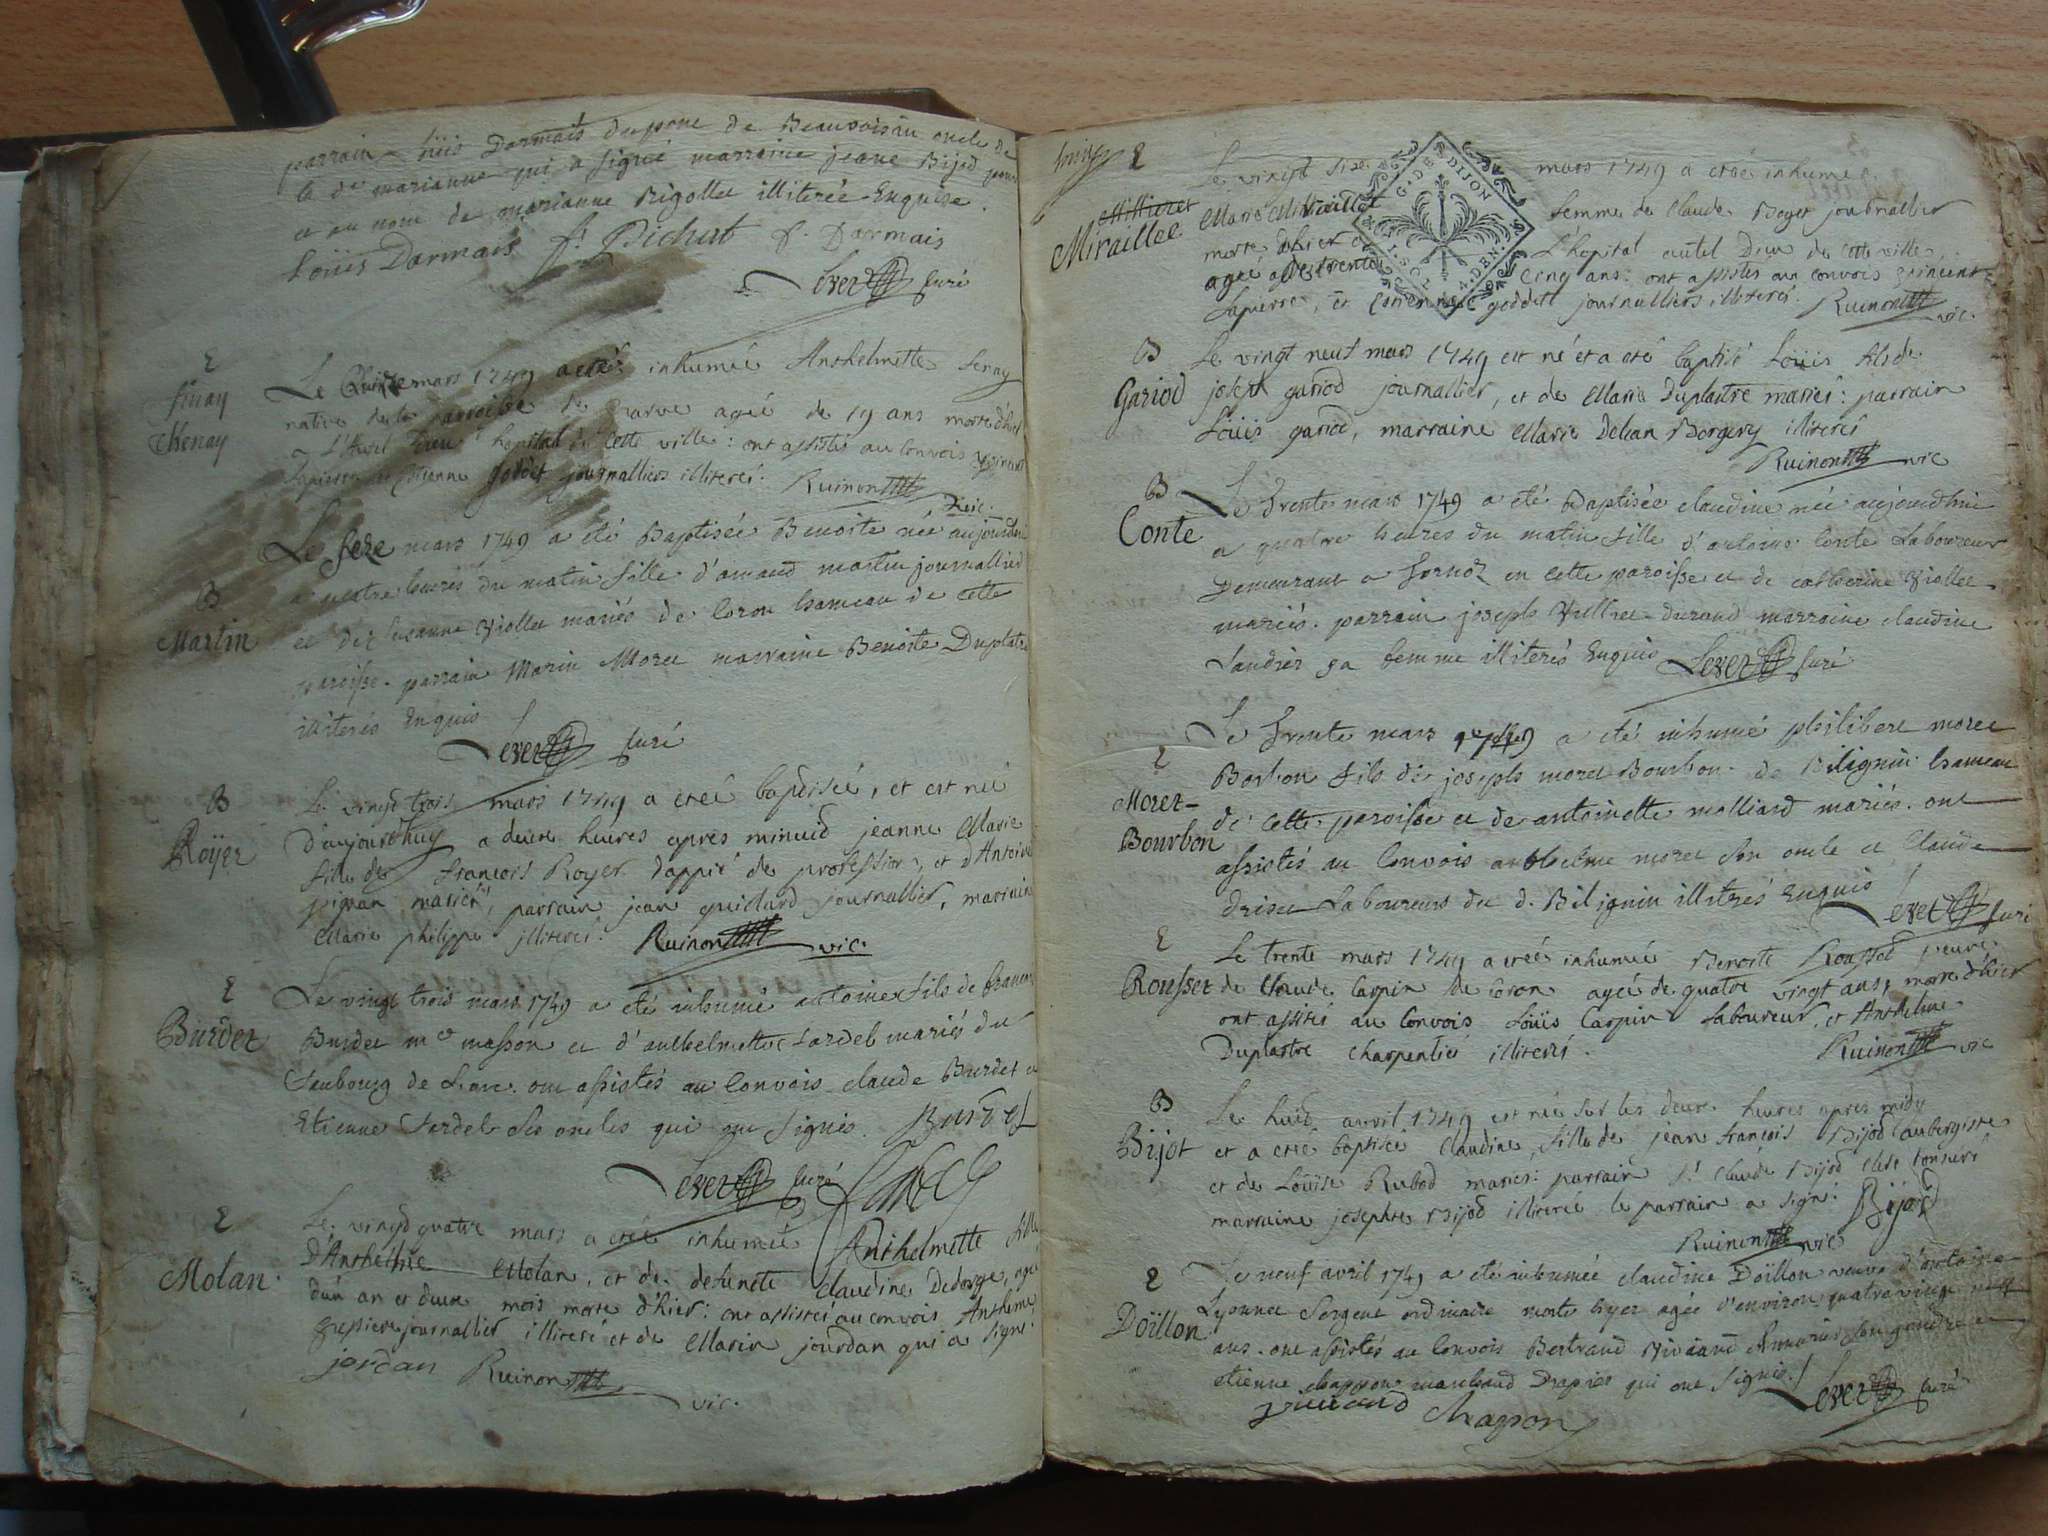 parrain Loüis Darmais dupont de Beauvoisin oncle de
la de marianne qui a signé marraine jeane Bijod pour
et au nom de marianne Rigollet illiterée Enquise.
Loüis Darmais f. Pichut f. Darmais
Lever Curé
E
Chenay
Le Quinze mars 1749 a eté inhumée Anthelmette
native de la parroisse de agée de 19 ans morte d'hier
hopital de cette ville: ont assistés au convois Vincent
Lapierre et Etienne Godet journalliers illiterés. Ruinon
vic.
B
Martin
Le seze mars 1749 a été Baptisée Benoite née aujourdhui
a quatre heures du matin fille d'amand martin journallier
et de susanne Viollet mariés de Coron hameau de cette
paroisse. parrain Marin Moret marraine Benoite Duplatre
illiterés Enquis
Lever Curé
B
Röyer
Le vingt trois mars 1749 a eté baptisée, et est née
D'aujourd'huy a deux heures apres minuid jeanne Marie
fille de françois Royer de profession, et d'Antoine
pignan mariés, parrain jean guillard journallier, marraine
Marie philippe illiterés. Ruinon vic.
E
Burdet
Le vingt trois mars 1749 a eté inhumé antoine fils de francois
Burdet me masson et d'anthelmette Tardel mariés du
faubourg de Larc. ont assistés au Convois claude Burdet et
Etienne Tardel ses oncles qui ont signés. Burdet
Lever Curé
E
Molan
Le vingt quatre mars a eté inhumée Anthelmette fille
D'Anthelme Molan, et de defuncte Claudine agée
d'un an et deux mois morte d'hier: ont assistés au convois Anthelme
journallier illiteré et de Marin jourdan qui a signé.
jordan Ruinon
vic.
E
Miraillet
Le vingt six mars 1749 a eté inhumée
Marie Miraillet femme de Claude Boyer journallier
morte d'hier a L'hopital autel Dieu de cette ville,
ageé de trente Cinq ans: ont assistés au convois Vincent
Lapierre, et Etienne godet journalliers illiterés. Ruinon
vic.
G. D E D I J O N
B
Gariod
Le vingt neuf mars 1749 est né et a eté baptisé Loüis fils de
joseph gariod journallier, et de Marie Duplastre mariés: parrain
Loüis gariod, marraine Marie Delean Borgery illiterés
Ruinon vic
B
Conte
Le Trente mars 1749 a eté Baptisée claudine née aujourdhui
a quatre heures du matin fille d'antoine Conte Laboureur
Demeurant a en cette paroisse et de catherine Viollet
mariés. parrain joseph Vuillret-Durand marraine claudine
Landrés sa femme illiterés Enquis Lever Curé
E
Moret-
Bourbon
Le Trente mars 1749 a eté inhumé philibert moret
Borbon fils de joseph moret Bourbon de Bilignin hameau
de cette paroisse et de antoinette molliard mariés. ont
assistés au Convois anthelme moret son oncle et Claude
Laboureurs du d. Bilignin illitrés Enquis Lever Curé
E
Rousset
Le trente mars 1749 a eté inhumée Benoite Rousset veuve
de Claude Carpin de Coron ageé de quatre vingt ans, morte d'hier
ont assistés au Convois Loüis Carpin Laboureur, et Anthelme
Duplastre Charpentié illiterés. Ruinon vic
B
Bijot
Le huit avril 1749 est née sur les deux heures apres midy
et a eté baptisée Claudine, fille de jean francois Bijod aubergiste
et de Loüise Rubod mariés: parrain Sr Claude Bijod clerc tonsuré
marraine josephte Bijod illiterée le parrain a signé. Bijod
Ruinon vic
E
Doïllon
Le neuf avril 1749 a eté inhumée claudine Doïllon veuve d'antoine
Lyonnet Sergent ordinaire morte hyer agée d'environ quatre vingt
ans. ont assistés au Convois Bertrand son gendre et
etienne chapron marchand Drapier qui ont signés.
Lever Curé
Chapron